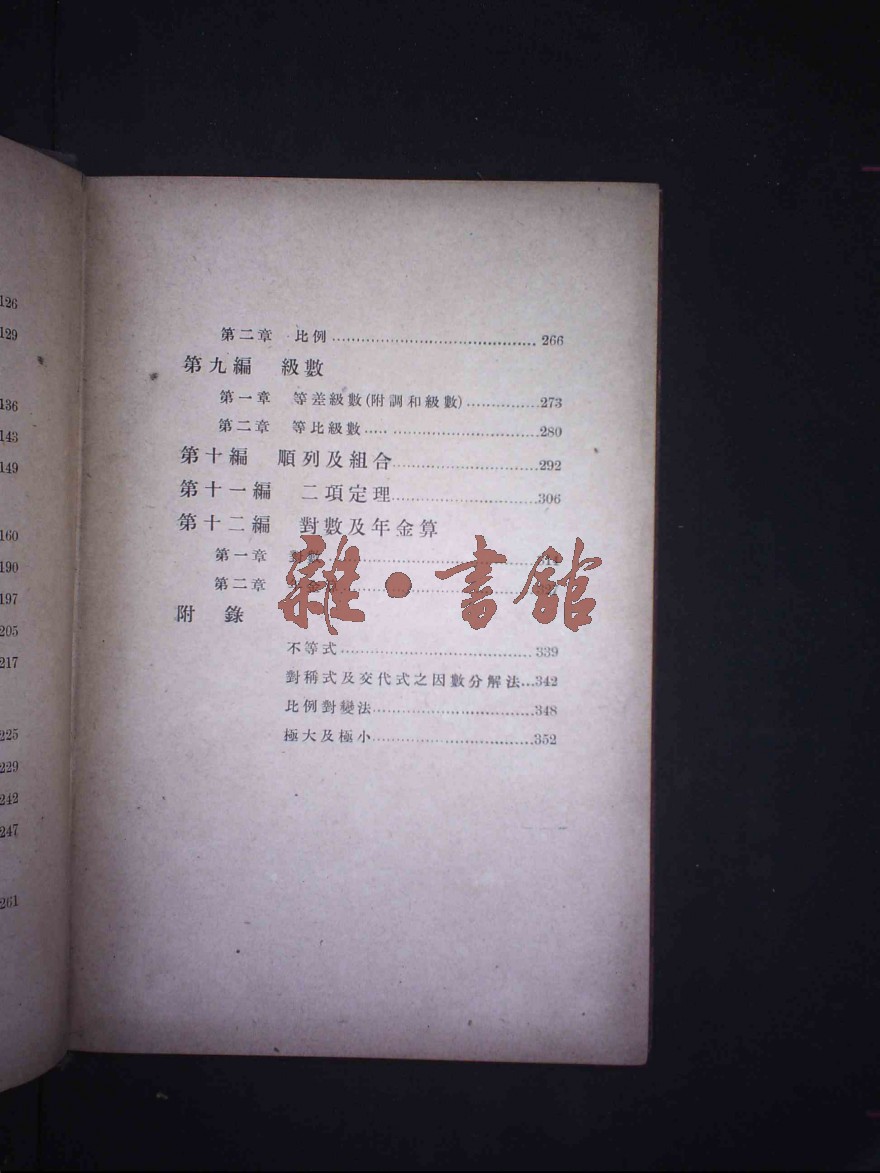 126
129
136
143
149
160
190
197
205
217
225
229
242
247
261
第二章 比例 ........................................ 266
第九編 級數
第一章 等差級數(附調和級數) ...............273
第二章 等比級數..... .............................280
第十編 順列及組合..............................292
第十一編 二項定理..............................306
第十二編 對數及年金算
第一章 對數
第二章
附錄
不等式......................................339
對稱式及交代式之因數分解法...342
比例對變法.................................348
極大及極小.................................352
雜·書館